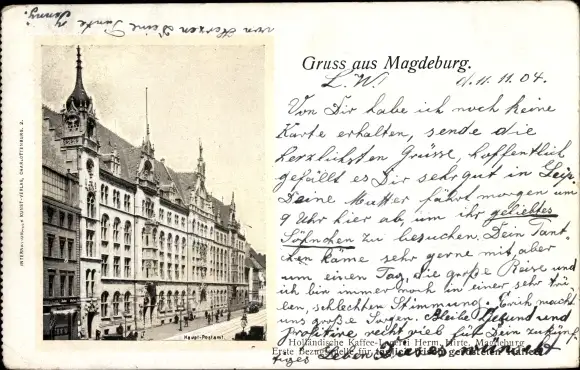 Gruss aus Magdeburg.
L. W. d. 11. 11. 04.
Von Dir habe ich noch keine
Karte erhalten, sende die
herzlichsten Grüsse, hoffentlich
gefällt es Dir sehr gut in Leip.
Deine Mutter fährt morgen um
9 Uhr hier ab, um ihr geliebtes
Söhnchen zu besuchen. Dein Tant-
chen käme sehr gerne mit, aber
um einen Tag, die große Reise und
ich bin immer noch in einer sehr trü-
ben, schlechten Stimmung. macht
uns große Sorgen. Bleibe gesund und
recht viel für Dein zukünf-
tiges Leben. Dies wünscht
von Herzen Deine Tante
Jenny.
Haupt-Postamt
INTERNATIONALER KUNST-VERLAG, CHARLOTTENBURG. 2.
Holländische Kaffee-Lagerei Herm. Hirte, Magdeburg
Erste Bezugsquelle für täglich frisch gerösteten Kaffee